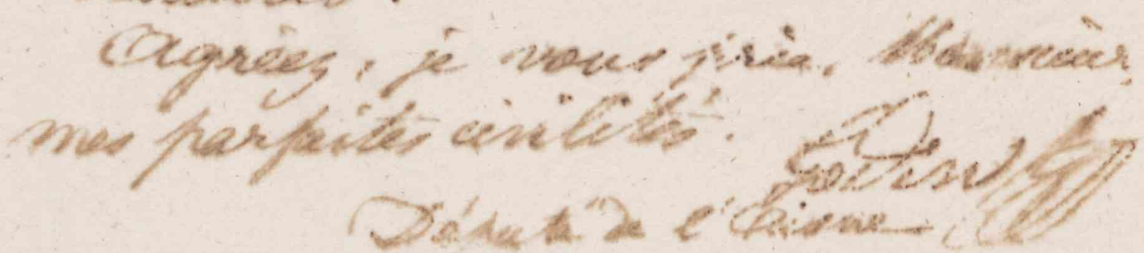 Agréez, je vous prie, Monsieur,
mes parfaites civilités.
Godin
Député de l'Aisne